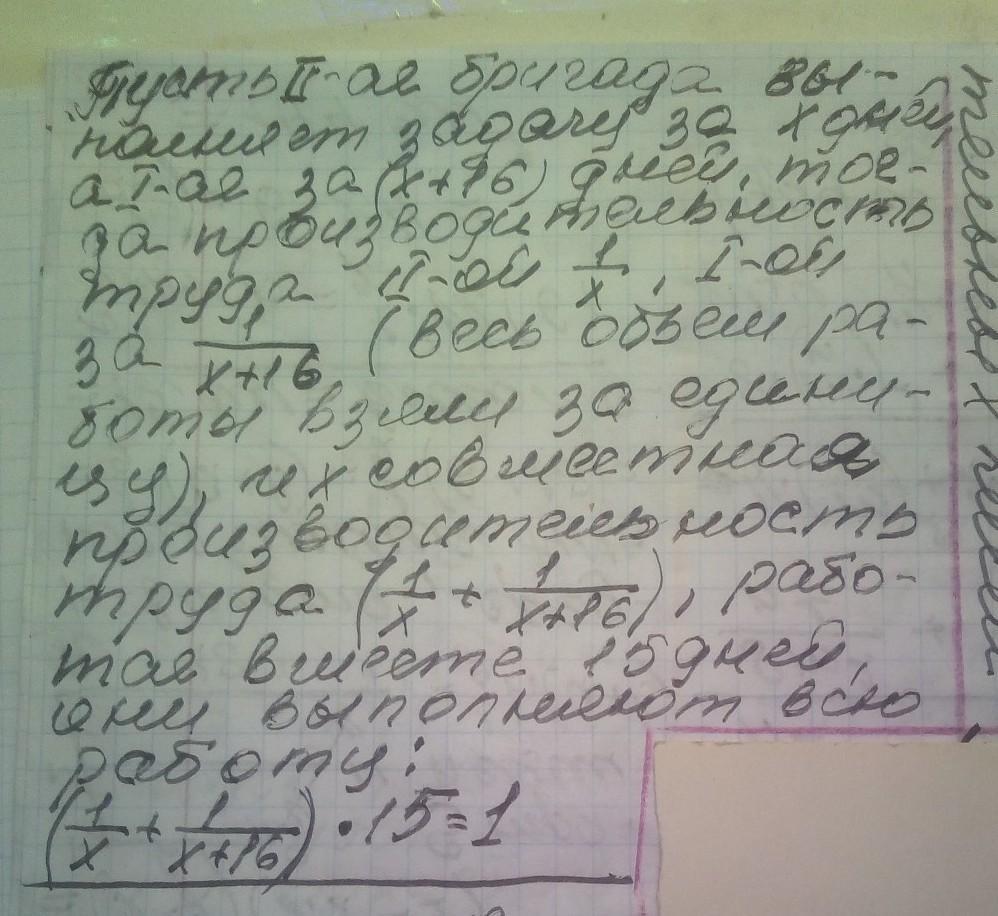 Пусть II-ая бригада вы-
полняет задачу за x дней,
а I-ая за (x+16) дней, тог-
да производительность
труда II-ой 1/x, I-ой
за 1/(x+16) (весь объем ра-
боты взяли за едини-
цу), их совместная
производительность
труда (1/x + 1/(x+16)), рабо-
тая вместе 15 дней,
они выполняют всю
работу:
(1/x + 1/(x+16)) • 15 = 1